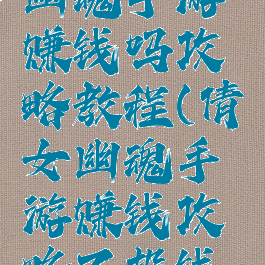 幽魂手游
赚钱吗攻
略教程(倩
女幽魂手
游赚钱攻
略不花钱